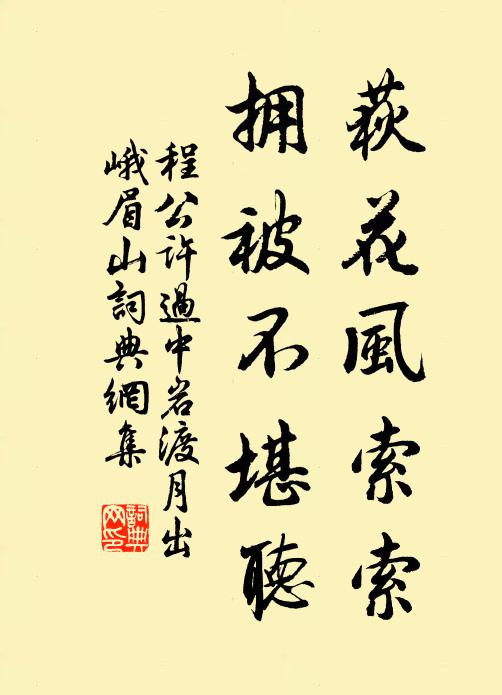 萩花風索索
拥被不堪聽
程公许過中岩渡月出
峨眉山詞典網集
詞典網印